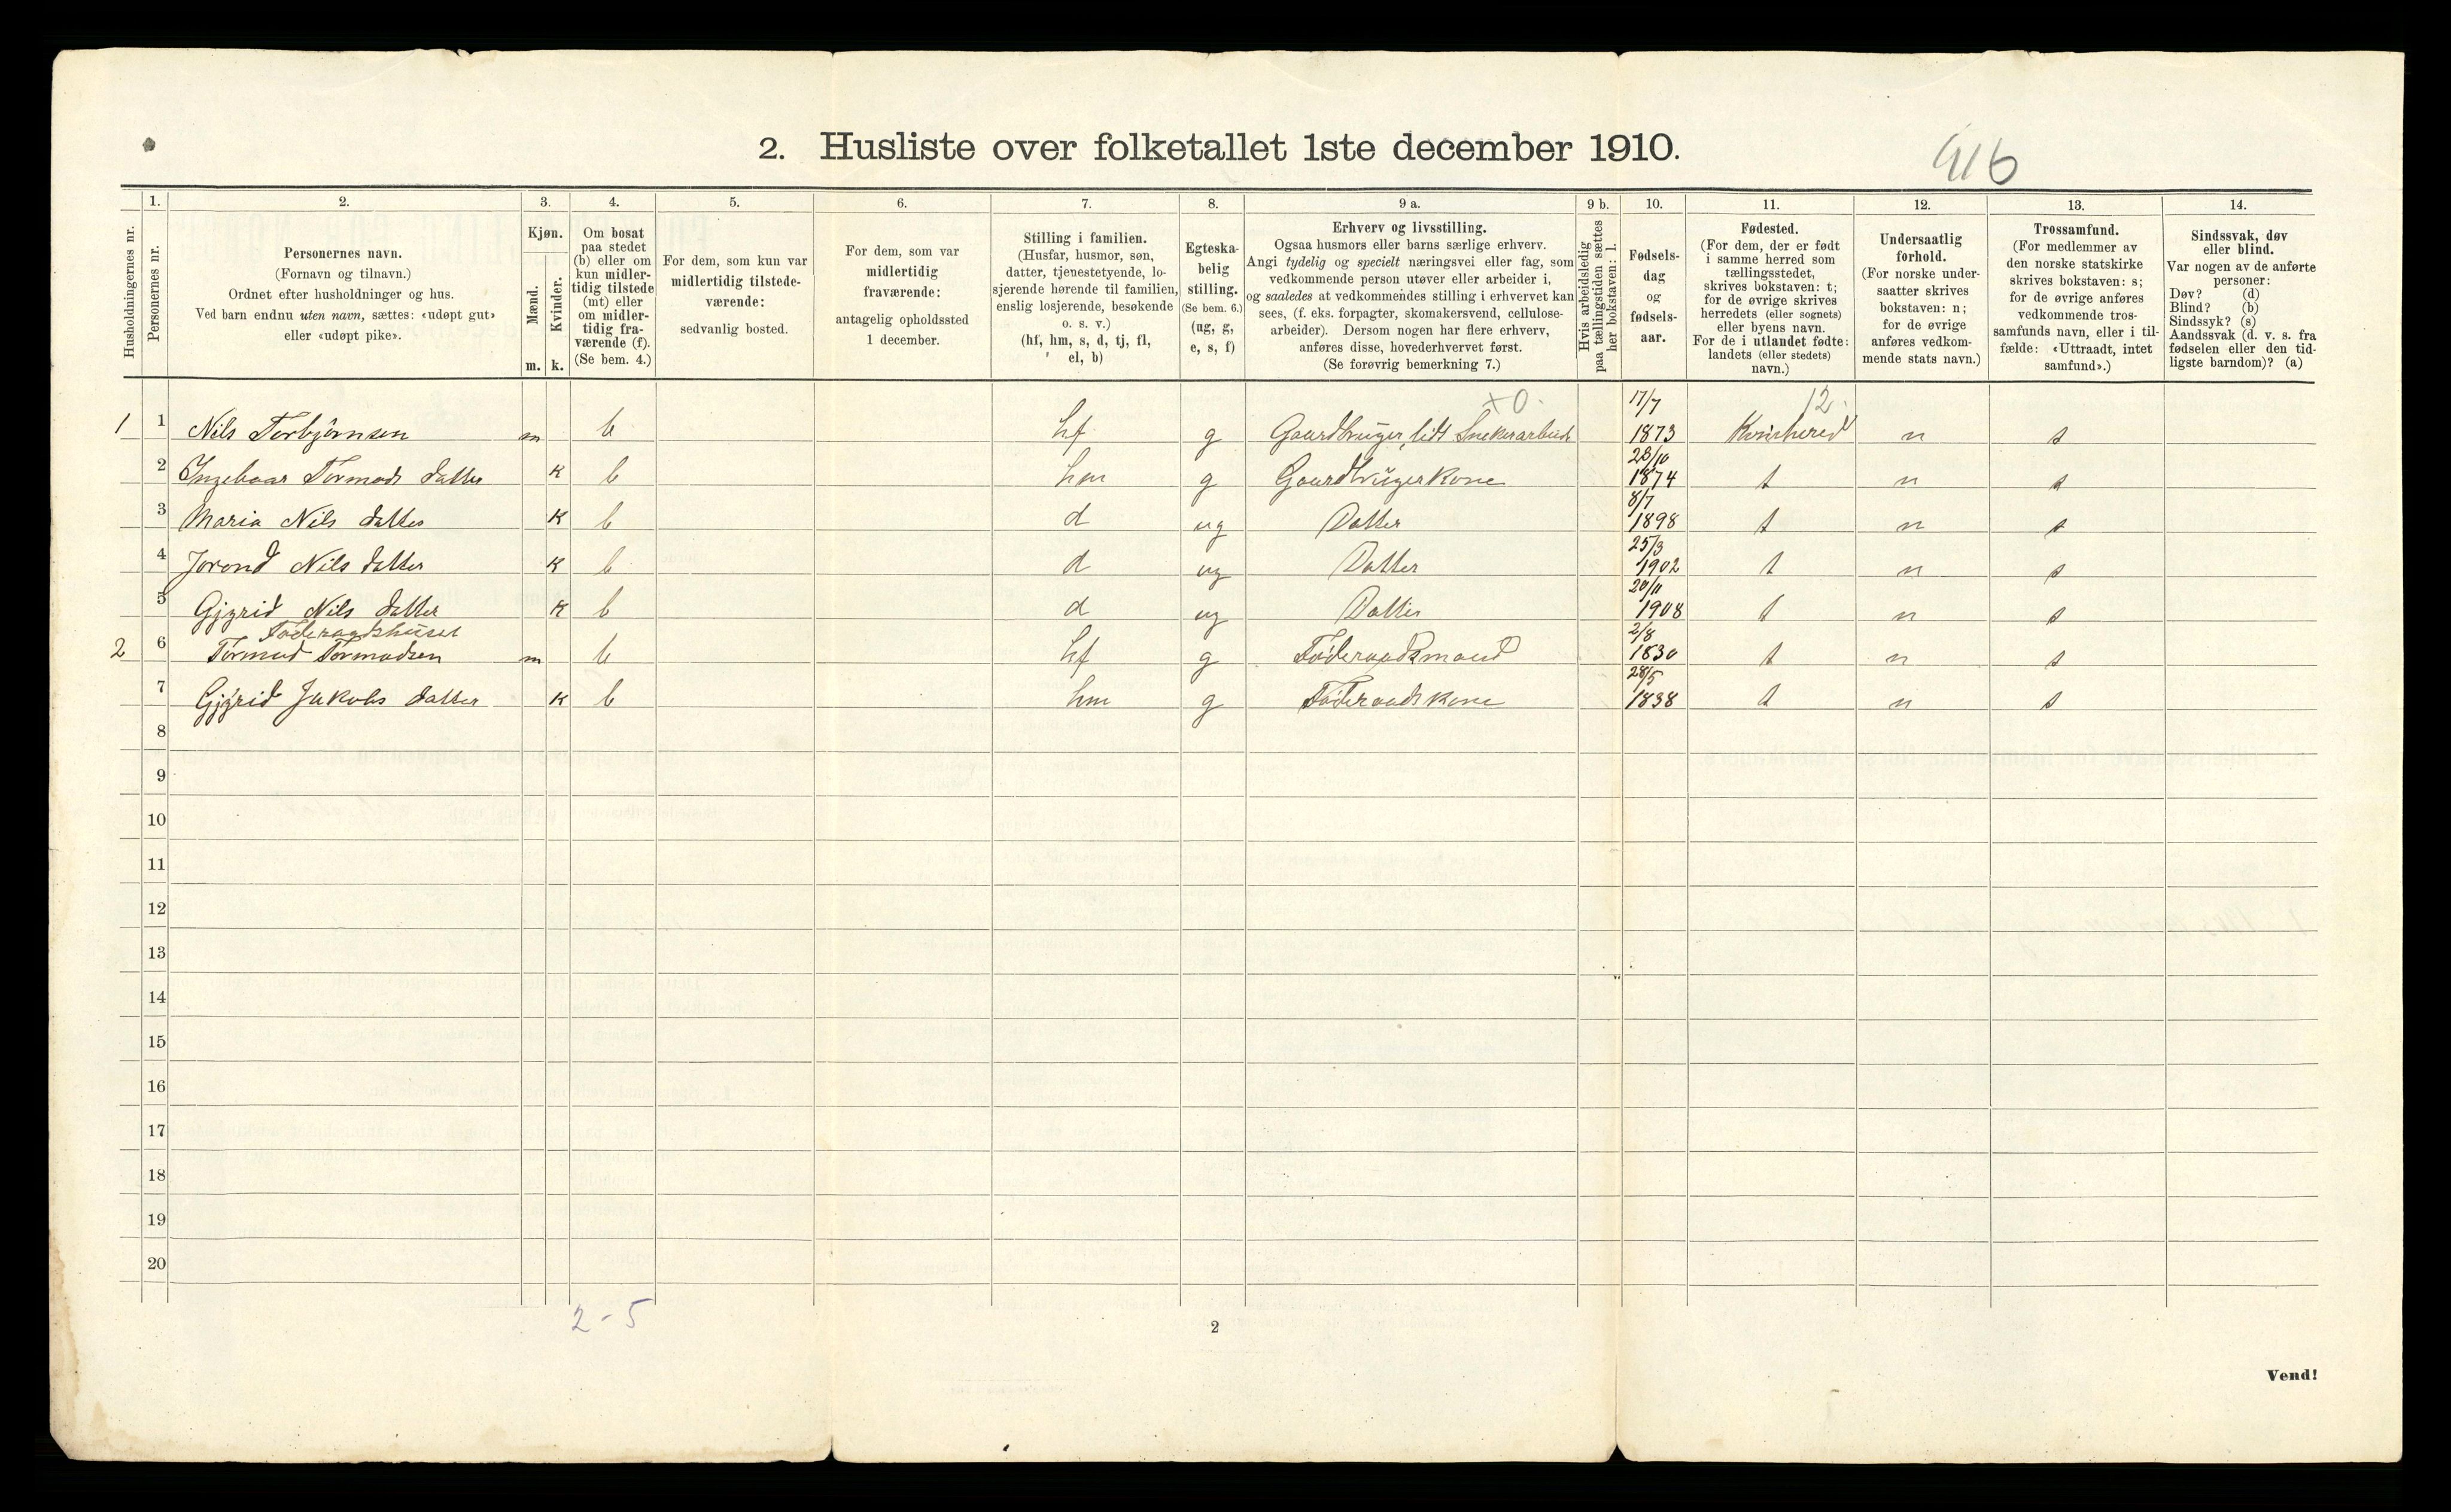 2. Husliste over folketallet 1ste december 1910.
416
1. 2. 3. 4. 5. 6. 7. 8. 9 a. 9 b. 10. 11. 12. 13. 14.
Husholdningernes nr.
Personernes nr.
Personernes navn.
(Fornavn og tilnavn.)
Ordnet efter husholdninger og hus.
Ved barn endnu uten navn, sættes: «udøpt gut»
eller «udøpt pike».
Kjøn.
Mænd.
Kvinder.
m. k.
Om bosat
paa stedet
(b) eller om
kun midler-
tidig tilstede
(mt) eller
om midler-
tidig fra-
værende (f).
(Se bem. 4.)
For dem, som kun var
midlertidig tilstede-
værende:
sedvanlig bosted.
For dem, som var
midlertidig
fraværende:
antagelig opholdssted
1 december.
Stilling i familien.
(Husfar, husmor, søn,
datter, tjenestetyende, lo-
sjerende hørende til familien,
enslig losjerende, besøkende
o. s. v.)
(hf, hm, s, d, tj, fl,
el, b)
Egteska-
belig
stilling.
(Se bem. 6.)
(ug, g,
e, s, f)
Erhverv og livsstilling.
Ogsaa husmors eller barns særlige erhverv.
Angi tydelig og specielt næringsvei eller fag, som
vedkommende person utøver eller arbeider i,
og saaledes at vedkommendes stilling i erhvervet kan
sees, (f. eks. forpagter, skomakersvend, cellulose-
arbeider). Dersom nogen har flere erhverv,
anføres disse, hovederhvervet først.
(Se forøvrig bemerkning 7.)
Hvis arbeidsledig
paa tællingstiden sættes
her bokstaven: l.
Fødsels-
dag
og
fødsels-
aar.
Fødested.
(For dem, der er født
i samme herred som
tællingsstedet,
skrives bokstaven: t;
for de øvrige skrives
herredets (eller sognets)
eller byens navn.
For de i utlandet fødte:
landets (eller stedets)
navn.)
Undersaatlig
forhold.
(For norske under-
saatter skrives
bokstaven: n;
for de øvrige
anføres vedkom-
mende stats navn.)
Trossamfund.
(For medlemmer av
den norske statskirke
skrives bokstaven: s;
for de øvrige anføres
vedkommende tros-
samfunds navn, eller i til-
fælde: «Uttraadt, intet
samfund».)
Sindssvak, døv
eller blind.
Var nogen av de anførte
personer:
Døv? (d)
Blind? (b)
Sindssyk? (s)
Aandssvak (d. v. s. fra
fødselen eller den tid-
ligste barndom)? (a)
x0. 17/7 12.
1 1 Nils Torbjörnsen m b hf g Gaardbruger, lidt Snekerarbeid 1873 Kvinhered n s
28/10
2 Ingeboar Tormods datter k b hm g Gaardbrugerkone 1874 t n s
8/7
3 Maria Nils datter k b d ug Datter 1898 t n s
25/3
4 Jorond Nils datter k b d ug Datter 1902 t n s
20/11
5 Gjyrid Nils datter k b d ug Datter 1908 t n s
Föderaadshuset 2/8
2 6 Tormod Tormodsen m b hf g Föderaadsmand 1830 t n s
28/5
7 Gjyrid Jakobs datter k b hm g Föderaadskone 1838 t n s
8
9
10
11
12
13
14
15
16
17
18
19
20
2 - 5
2
Vend!